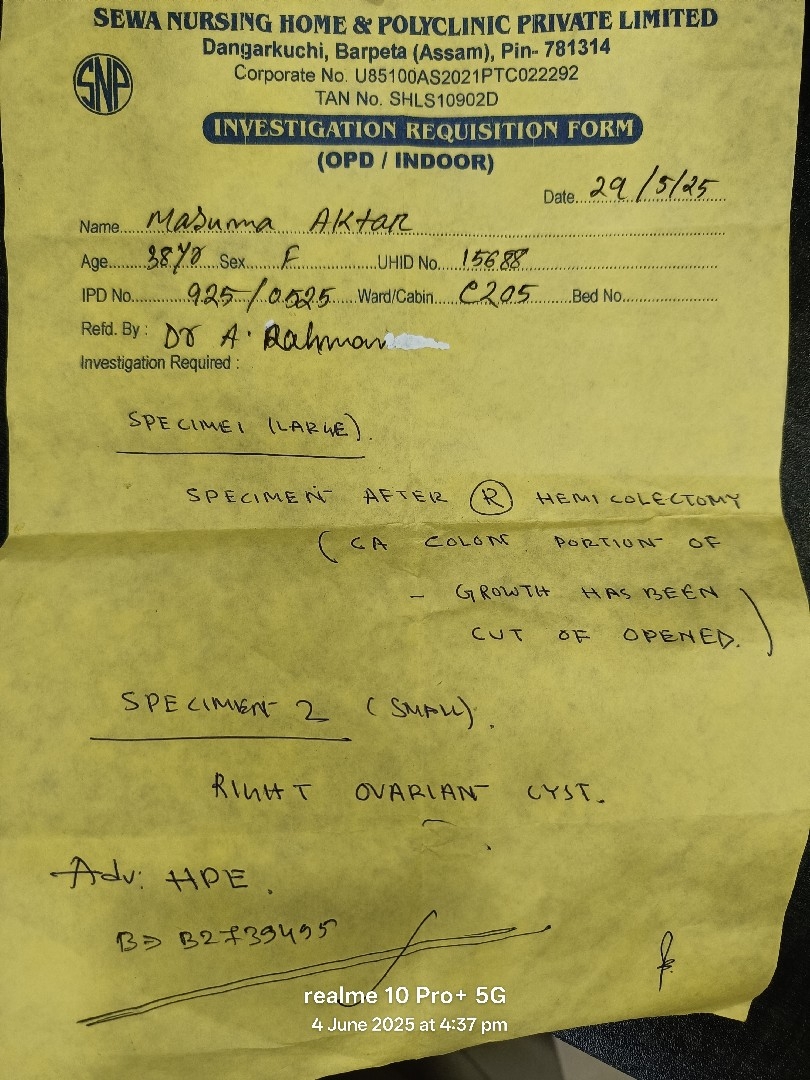 SEWA NURSING HOME & POLYCLINIC PRIVATE LIMITED
Dangarkuchi, Barpeta (Assam), Pin- 781314
Corporate No. U85100AS2021PTC022292
TAN No. SHLS10902D
SNP
INVESTIGATION REQUISITION FORM
(OPD / INDOOR)
Date 29/5/25
Name Masuma Aktar
Age 38 Sex F UHID No. 15688
IPD No. 925/0525 Ward/Cabin C205 Bed No.
Refd. By : Dr A. Rahman
Investigation Required :
SPECIME1 (LARGE).
SPECIMENT AFTER (R) HEMICOLECTOMY
(CA COLON PORTION OF
- GROWTH HAS BEEN
CUT OF OPENED.)
SPECIMENT 2 (SMALL).
RIGHT OVARIAN CYST.
Adv: HPE.
B2739495
realme 10 Pro+ 5G
4 June 2025 at 4:37 pm